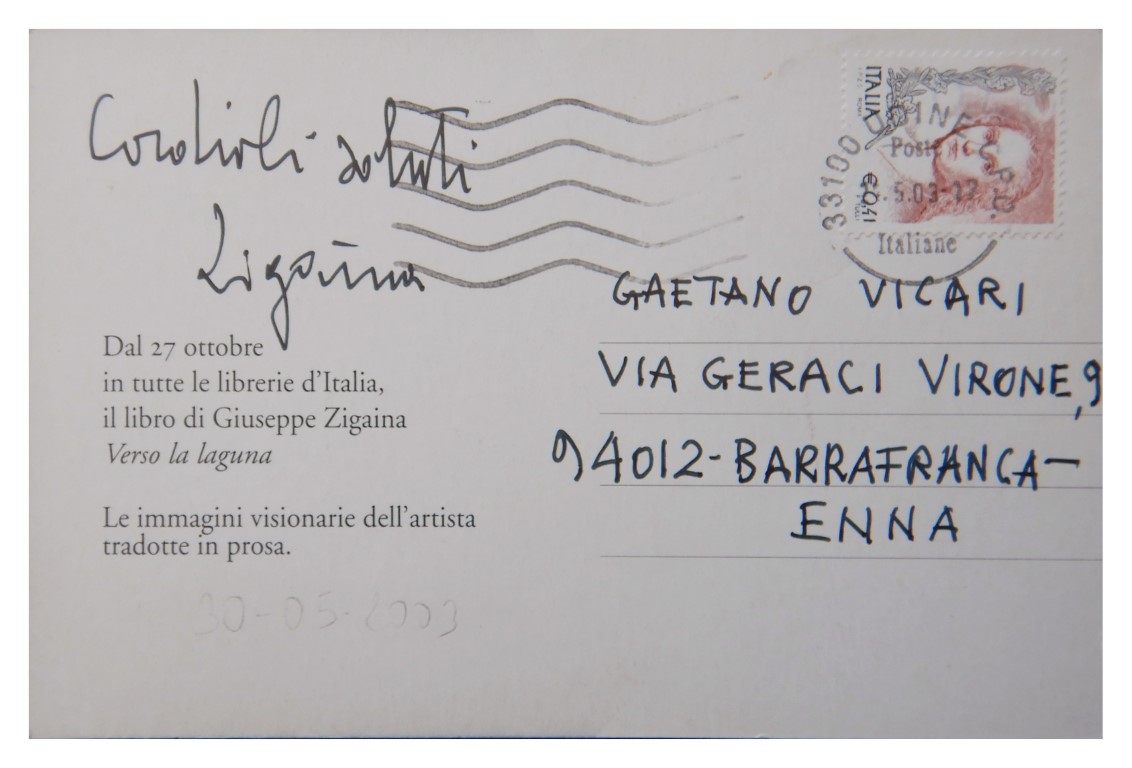 Cordiali saluti
Zigaina
Dal 27 ottobre
in tutte le librerie d'Italia,
il libro di Giuseppe Zigaina
Verso la laguna
Le immagini visionarie dell'artista
tradotte in prosa.
30-05-2003
ITALIA
€0,41
33100 UDINE C.P.O.
Poste
.5.03-12
Italiane
GAETANO VICARI
VIA GERACI VIRONE, 9
94012-BARRAFRANCA-
ENNA